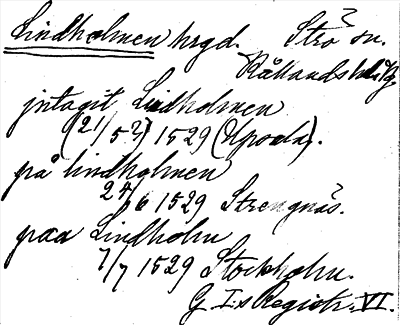 Lindholmen hrgd. Strö sn.
Kållands hd. Vg
jntagit Lindholmen
(21/5 ?) 1529 (Upsala).
på lindholmen
24/6 1529 Strengnäs.
paa Lindholm
7/7 1529 Stockholm.
G. I:s Registr. VI.